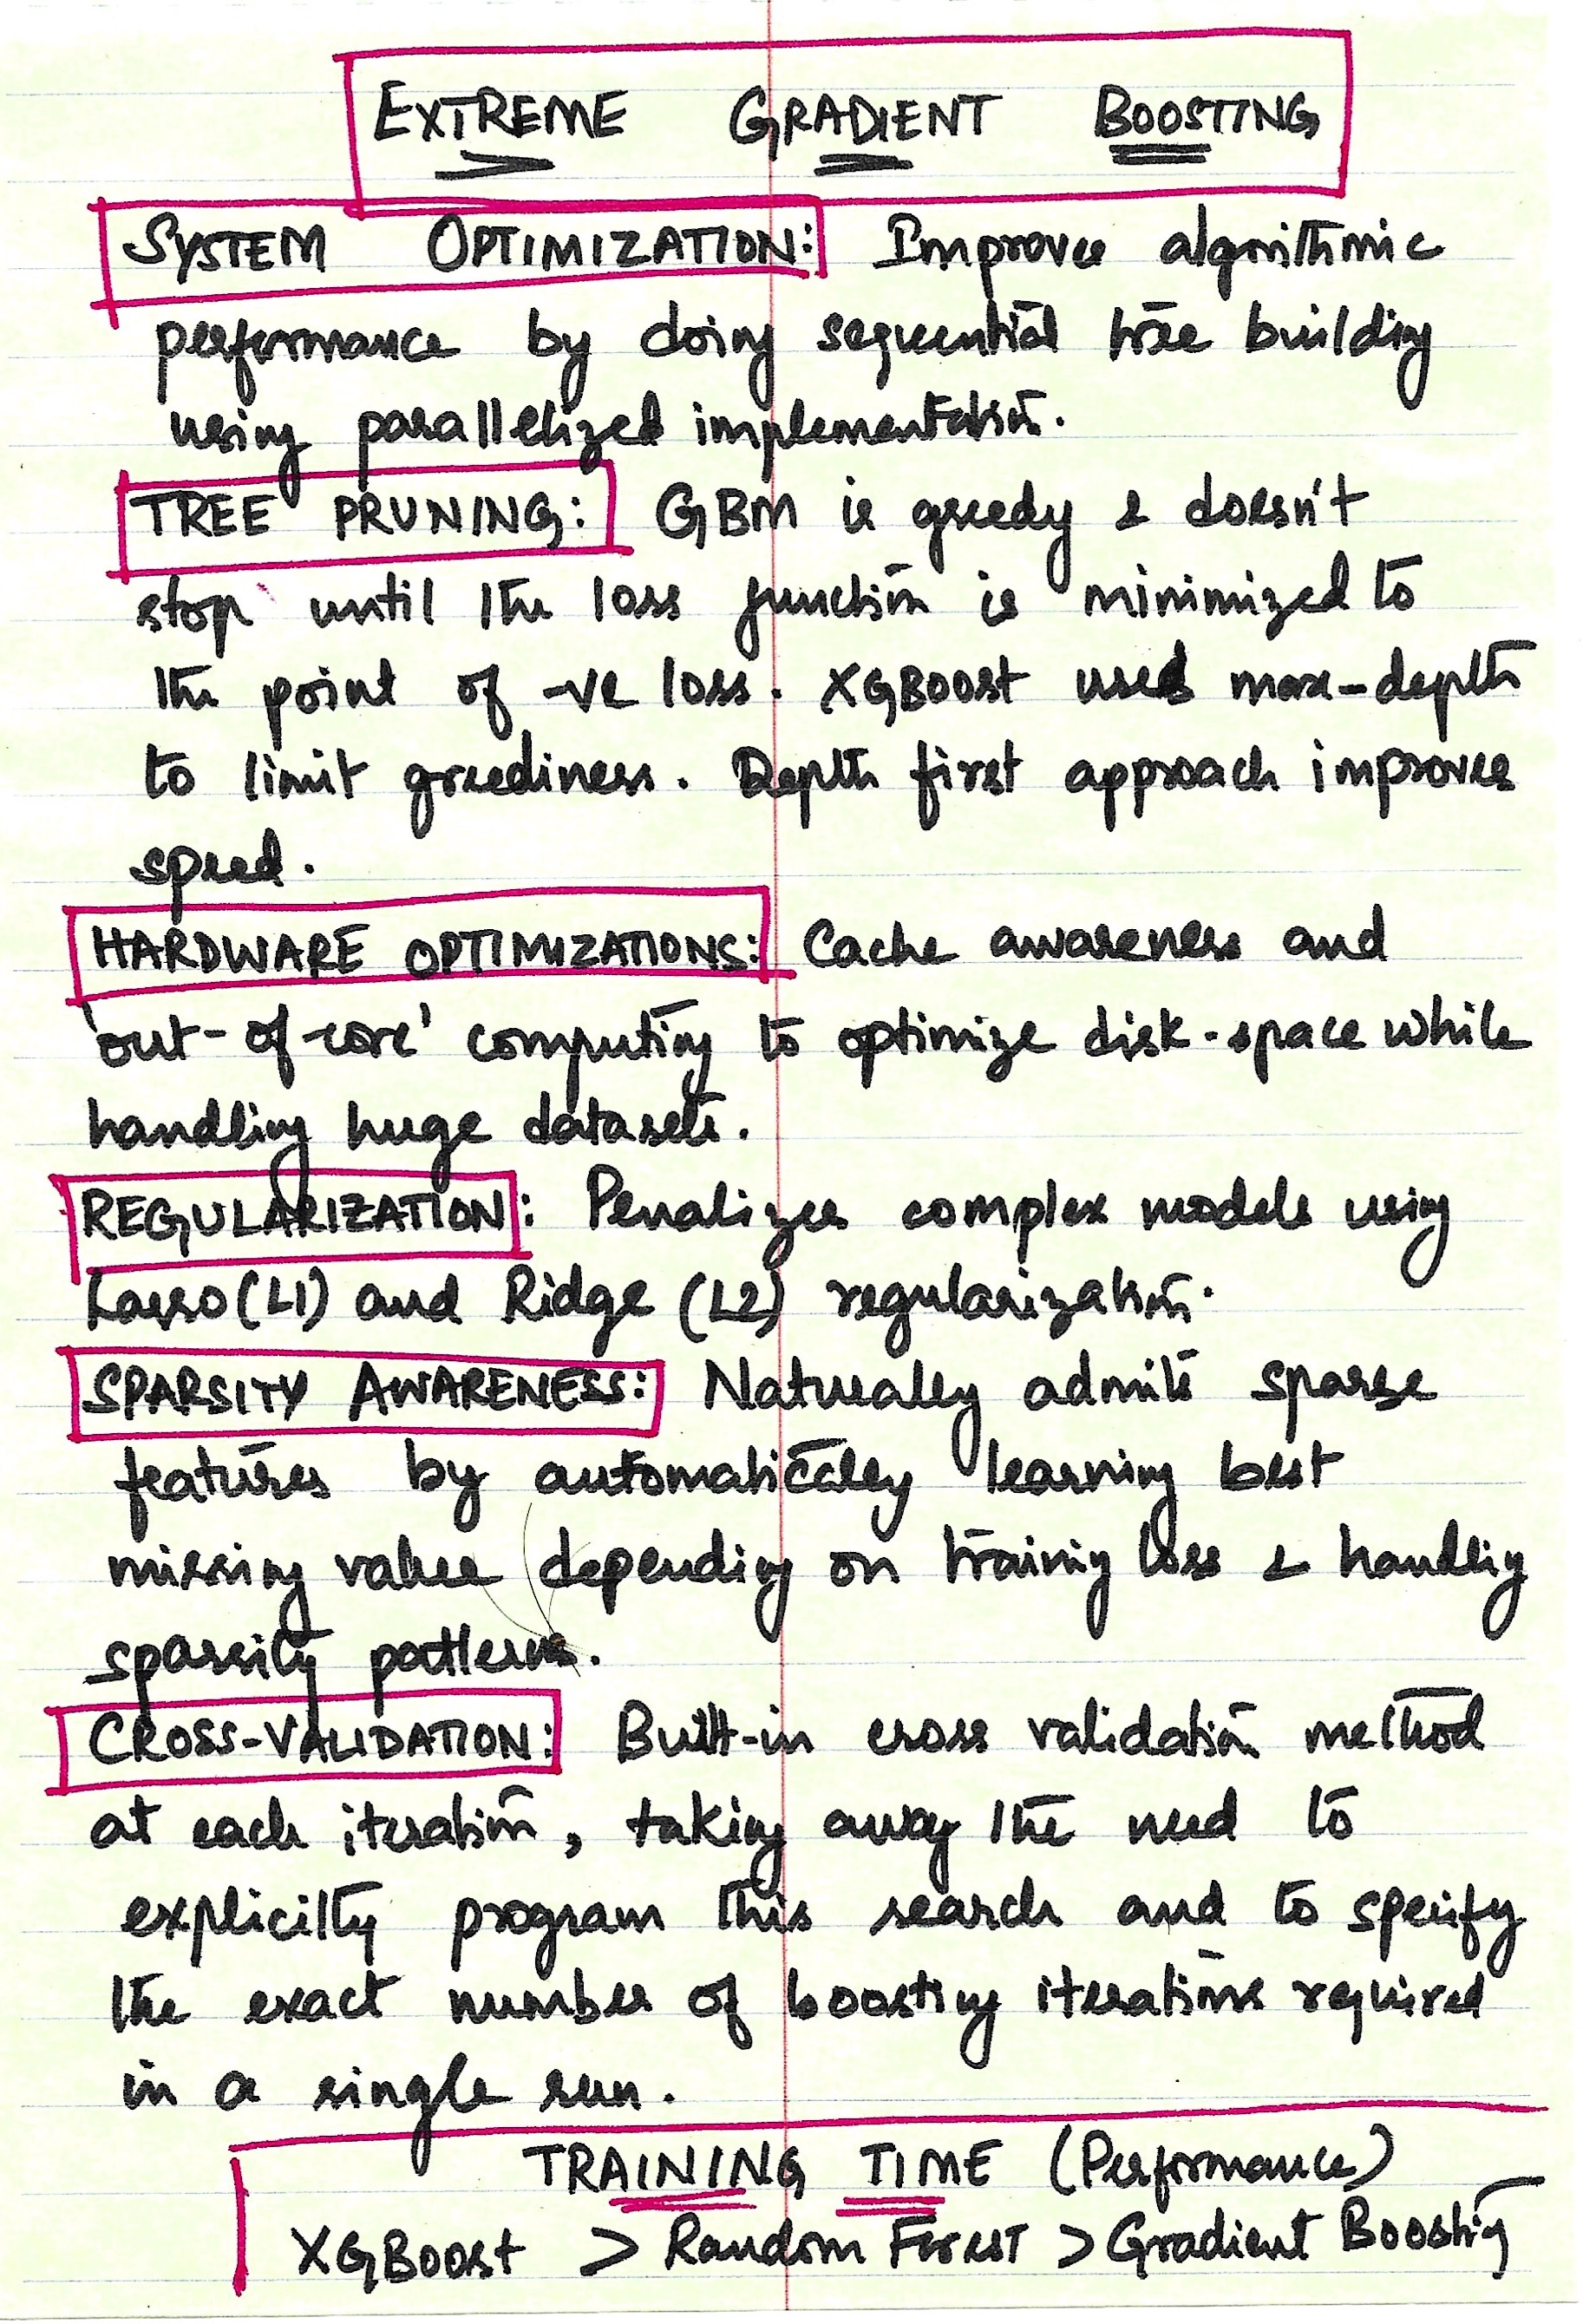 EXTREME GRADIENT BOOSTING
SYSTEM OPTIMIZATION: Improves algorithmic
performance by doing sequential tree building
using parallelized implementation.
TREE PRUNING: GBM is greedy & doesn't
stop until the loss function is minimized to
the point of -ve loss. XGBoost used max-depth
to limit greediness. Depth first approach improves
speed.
HARDWARE OPTIMIZATIONS: Cache awareness and
'out-of-core' computing to optimize disk-space while
handling huge datasets.
REGULARIZATION: Penalizes complex models using
Lasso (L1) and Ridge (L2) regularization.
SPARSITY AWARENESS: Naturally admits sparse
features by automatically learning best
missing value depending on training loss & handling
sparsity patterns.
CROSS-VALIDATION: Built-in cross validation method
at each iteration, taking away the need to
explicitly program this search and to specify
the exact number of boosting iterations required
in a single run.
TRAINING TIME (Performance)
XGBoost > Random Forest > Gradient Boosting